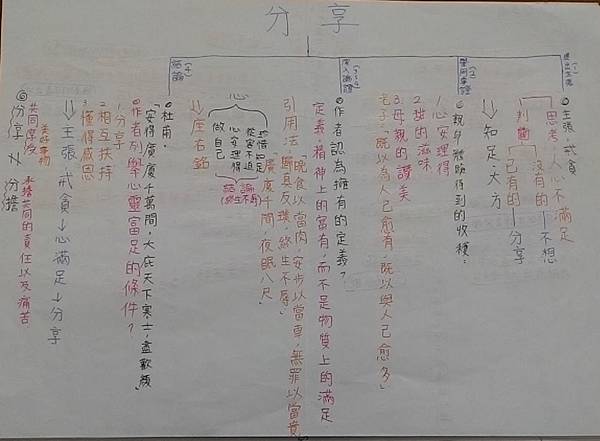 分享
(一)
提出主張
◎主張：戒貪
思考：人心不滿足
判斷
沒有的－不想
己有的－分享
↓知足，大方
(2)
舉例事證
◎親身體驗得到的收穫：
1.心安理得
2.甜的滋味
3.母親的讚美
老子：「既以為人己愈有，既以與人己愈多」
深入論證
◎作者認為擁有的定義？
定義：精神上的富有，而不是物質上的滿足
引用法
晚食以當肉，安步以當車，無罪以當貴
歸真反璞，終生不辱
「廣廈千間，夜眠八尺」
(4)
結論
心
珍惜知足
從容不迫
心安理得
做自己
↓座右銘
◎杜甫：
「安得廣廈千萬間，大庇天下寒士，盡歡顏」
◎作者列舉心靈富足的條件？
1.分享
2.相互扶持
3.懂得感恩
↓主張戒貪→心滿足→分享
◎分享
共同享受
美好事物
分擔
承擔共同的責任以及痛苦